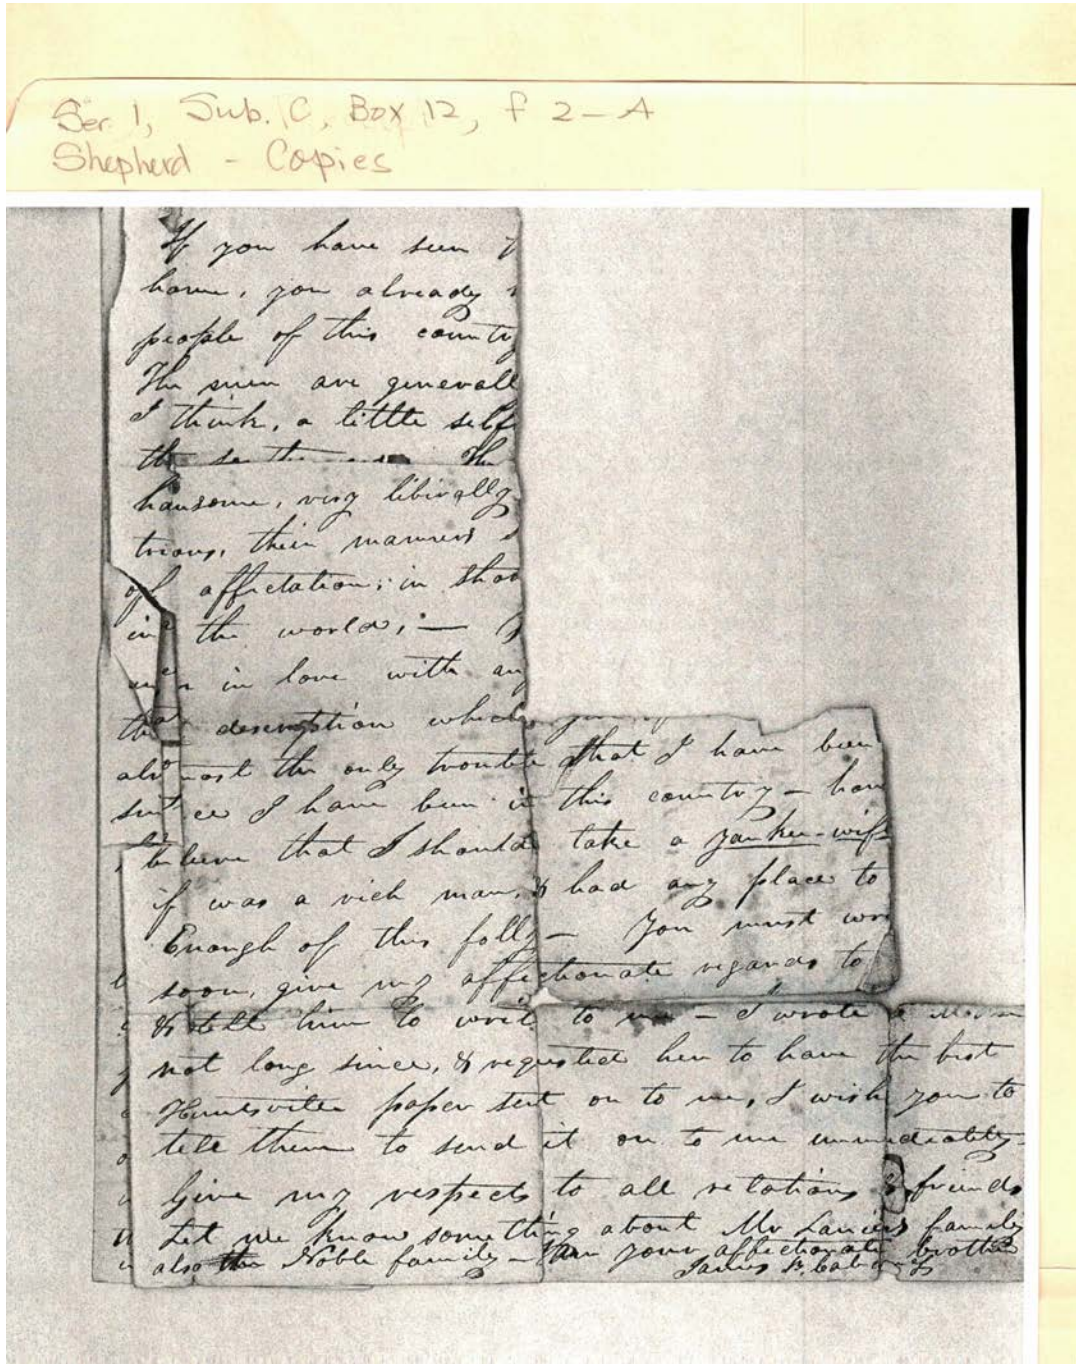 Ser 1, Sub. C, Box 12, f 2-A
Shepherd - Copies
If you have seen
home, you already
people of this county
The men are generall
I think, a little self
the The
hansome, very liberally
trious, their manners
of affectation; in shor
in the world; —
in love with any
that description which
almost the only trouble that I have been
since I have been in this country - how
believe that I should take a yankee-wife
if was a rich man, & had any place to
Enough of this folly — You must wri
soon, give my affectionate regards to
& tell him to write to me — I wrote
not long since, & requested her to have the best
Huntsville paper sent on to me, I wish you to
tell them to send it on to me immediately
Give my respects to all relations & friends
Let me know something about Mr Laniers family
also the Noble family - I am your affectionate brother
James